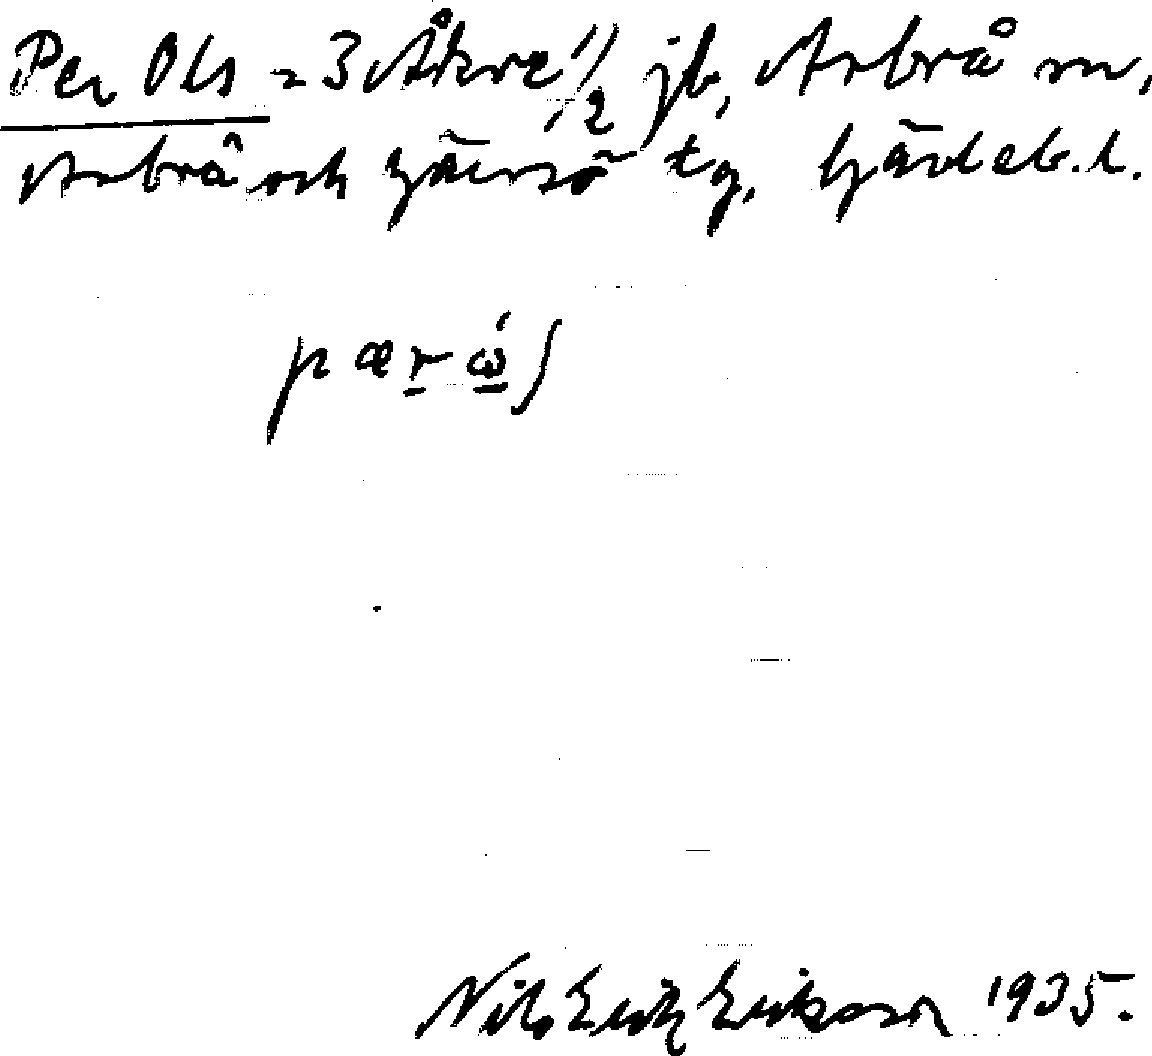 Per Ols = 3 Åkre 1/2 jb, Arbrå sn,
Arbrå och Järvsö tg, Gävleb. l.
pær ώʃ
Nils Erik Eriksson 1935.